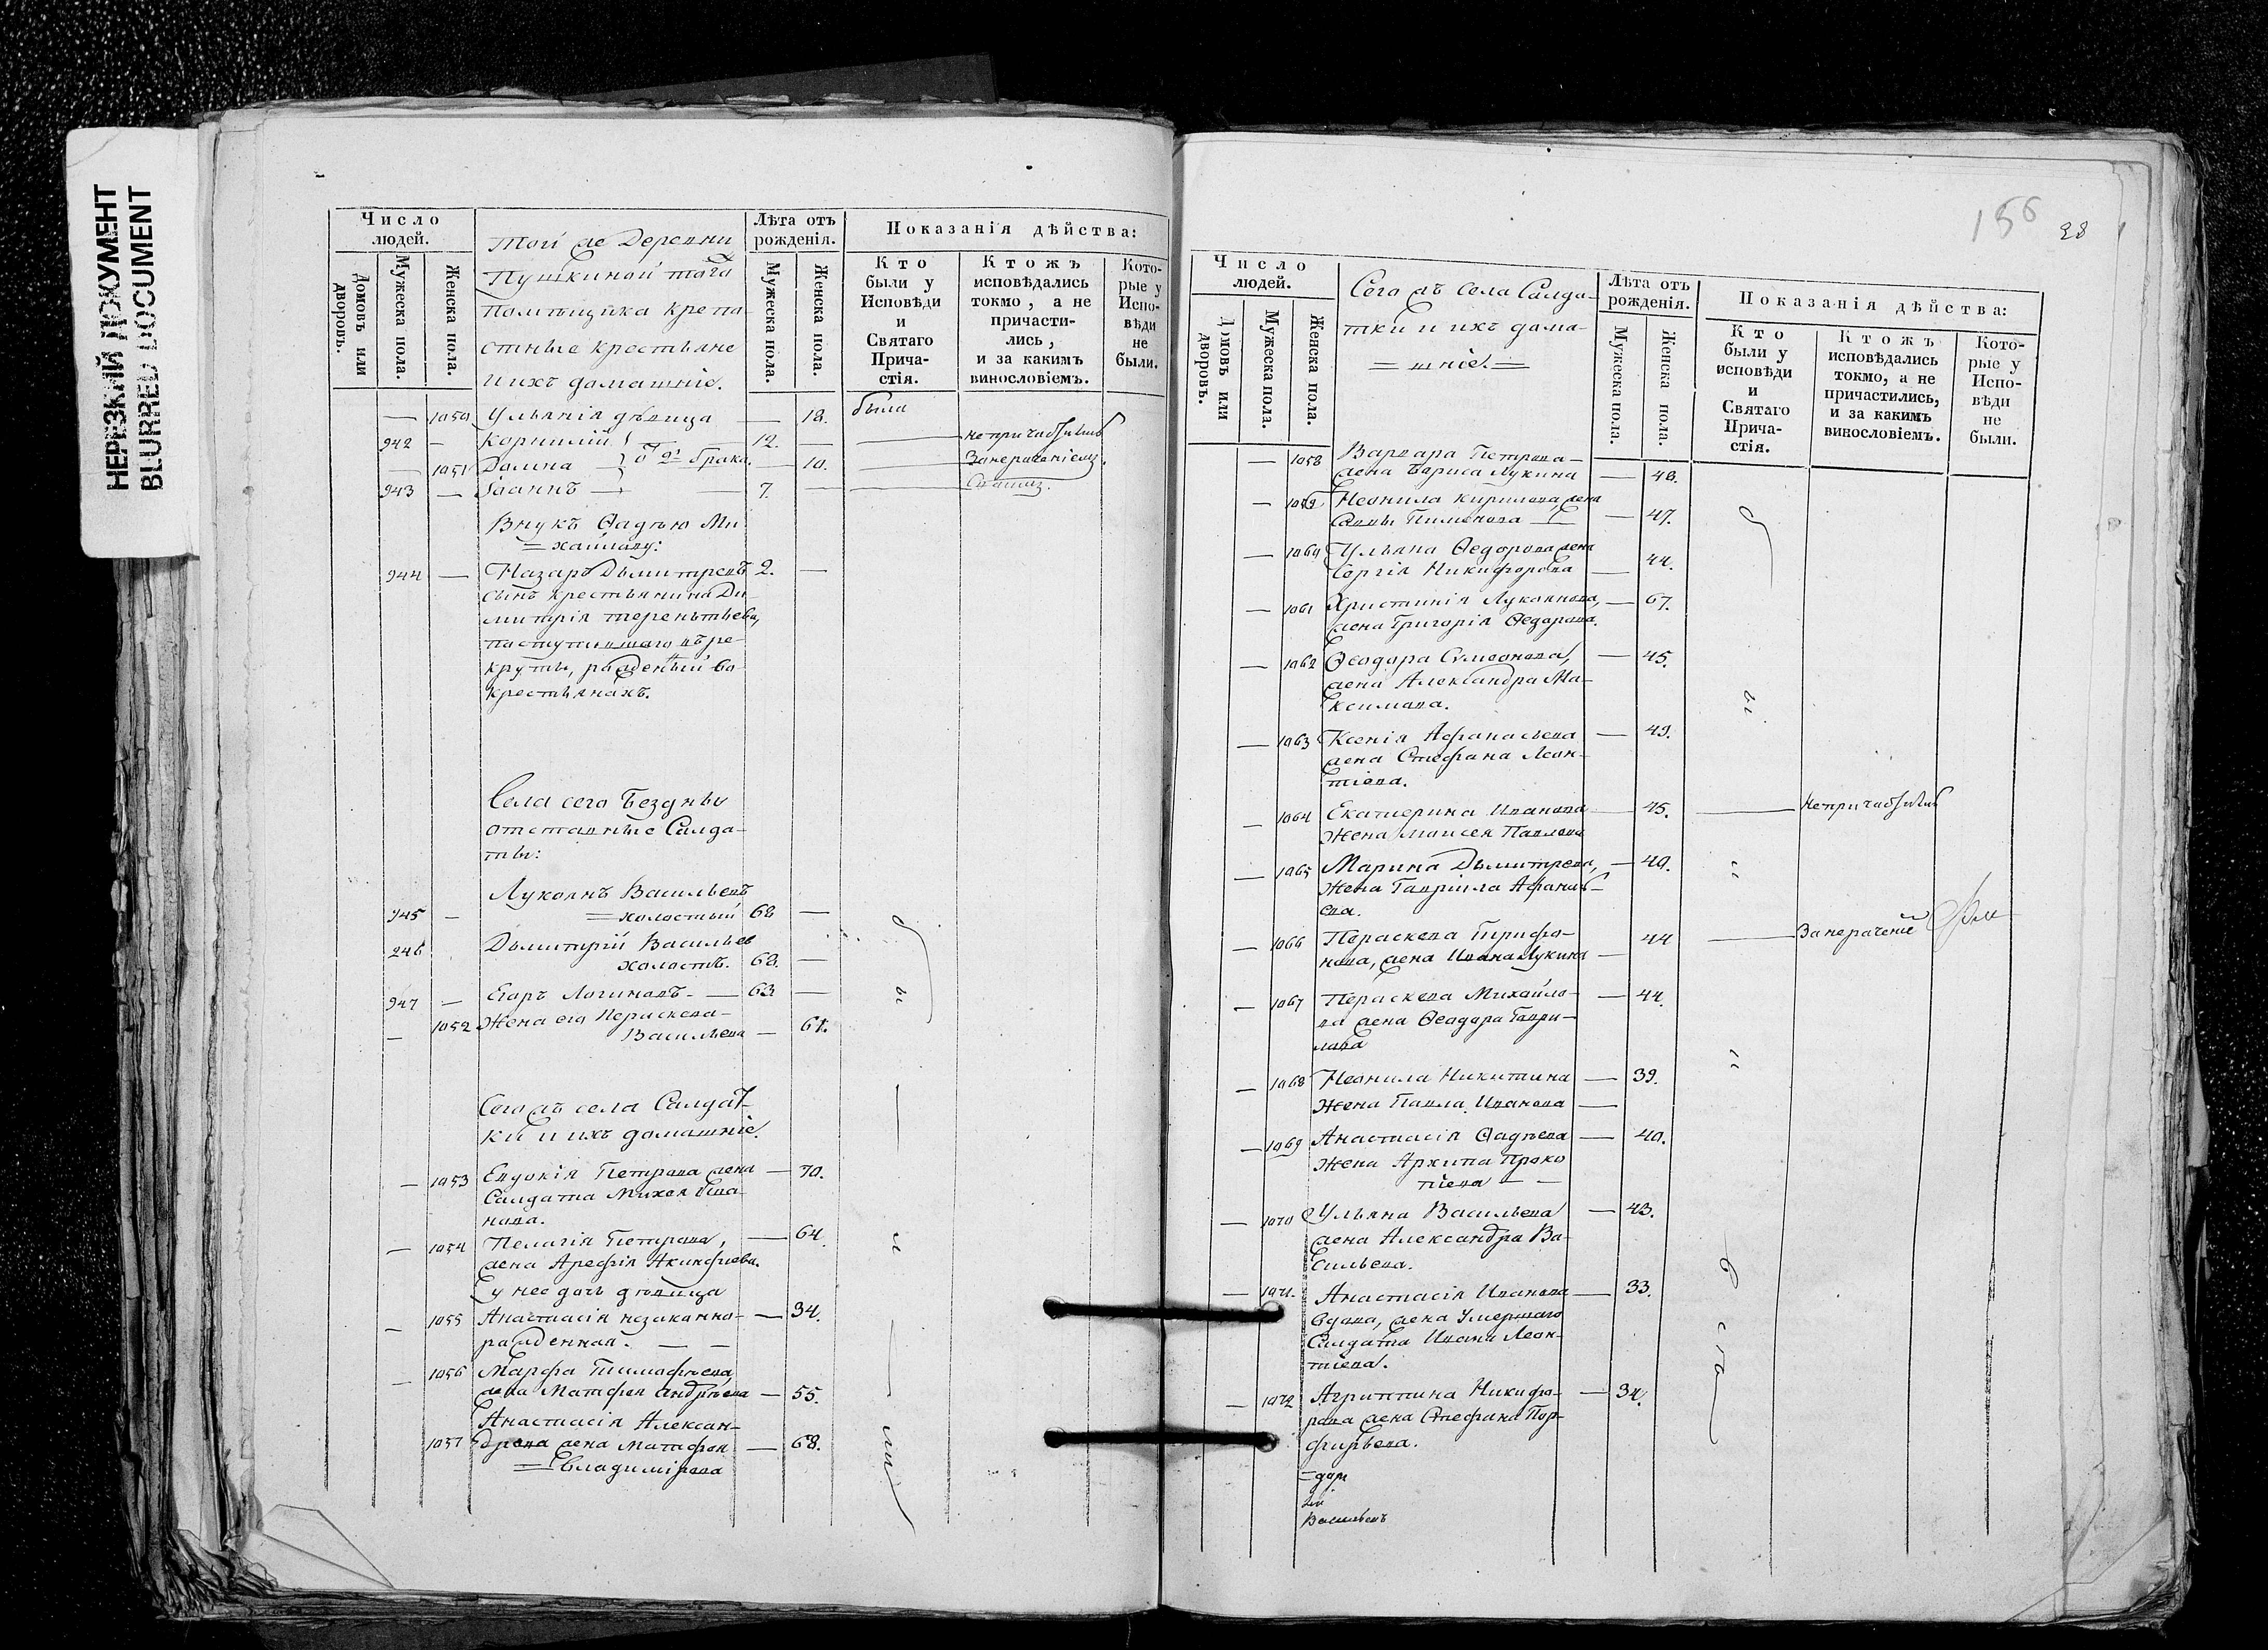 НЕРЕЗКИЙ ДОКУМЕНТ
BLURRED DOCUMENT
Число людей.
Домовъ или дворовъ.
Мужеска пола.
Женска пола.
Той же Деревни
Пушкиной того
помѣщика крепо-
стные крестьяне
и ихъ домашніе.
Лѣта отъ рожденія.
Мужеска пола.
Женска пола.
Показанія дѣйства:
Кто были у Исповѣди и Святаго Прича-стія.
Ктожъ исповѣдались токмо, а не причасти-лись, и за какимъ винословіемъ.
Кото-рые у Испо-вѣди не были.
— 1050 Ульянія дѣвица — 18. была
942 — Корнилій 12. —
— 1051 Домна } 2го брака. — 10.
943 — Іоаннъ — 7. —
Внукъ Ѳадѣю Ми
=хайлову:
944 — Назаръ Дьмитревъ 2. —
сынъ крестьянина Ди-
митрія Терентьева,
поступившаго въ ре-
круты, рожденный во
крестьянахъ.
Села сего Бездны
отставные Салда-
ты:
Лукоянъ Васильевъ
945 — =холостый 68 —
246 Дьмитрій Васильев
холостъ. 68. —
947 — Егоръ Логиновъ — 63 —
— 1052 Жена его Пераскева
Васильева — 61.
Сегожъ села Салдат-
ки и ихъ домашніе.
— 1053 Евдокія Петрова жена — 70.
Салдата Михея Ива-
нова.
— 1054 Пелагія Петрова, — 64.
жена Арефія Акинфиева.
у нее дочь дѣвица
— 1055 Анастасія незаконно- — 34.
рожденная. — —
— 1056 Марфа Тимофѣева
жена Матфея Андрѣева — 55.
Анастасія Алексан-
1057 дрова жена Матфея — 68.
=Владимірова
бы
ли
156
38
Число людей.
Домовъ или дворовъ.
Мужеска пола.
Женска пола.
Сего жъ села Салда-
тки и ихъ дома-
=шніе.=
Лѣта отъ рожденія.
Мужеска пола.
Женска пола.
Показанія дѣйства:
Кто были у исповѣди и Святаго Прича-стія.
Ктожъ исповѣдались токмо, а не причастились, и за какимъ винословіемъ.
Кото-рые у Испо-вѣди не были.
— 1058 Варвара Петрова
жена Бориса Лукина — 48.
— 1059 Неонила Кирилова жена
Саввы Пименова — 47.
— 1060 Ульяна Ѳедорова жена
Георгія Никифорова — 44.
— 1061 Христинія Лукоянова, — 67.
жена Григорія Ѳедорова.
— 1062 Ѳеодора Симеонова, — 45.
жена Александра Ма-
ксимова.
— 1063 Ксенія Афанасьева — 49.
жена Стефана Леон-
тіева.
— 1064 Екатерина Иванова — 45.
Жена Моисея Павлова
— 1065 Марина Дьмитрева, — 40.
Жена Гавріила Афанась
ева.
— 1066 Пераскева Трифо- 44
нова, жена Ивана Лукина —
— 1067 Пераскева Михайло- — 44.
ва жена Ѳеодора Гаври-
лова
— 1068 Неонила Никитина — 39.
Жена Павла Иванова —
— 1069 Анастасія Ѳадѣева — 40.
Жена Архипа Проко
піева — —
— 1070 Ульяна Васильева — 43.
жена Александра Ва-
сильева.
— 1071. Анастасія Иванова — 33.
вдова, жена умершаго
Салдата Ивана Леон-
тіева.
— 1072 Агриппина Никифо- — 34.
рова жена Стефана Пор-
фирьева.
Васильевъ